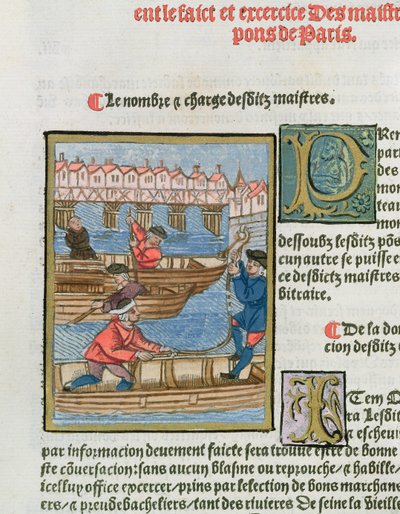 ent le faict et excercice Des maistr
pons de Paris.
¶ Le nombre ⁊ charge desditz maistres.
PRen
par
des
mon
teau
mon
dessoubz lesditz põs
cun autre se puisse e
ce desdictz maistres
bitraire.
¶ De la don
cion desditz
ITem D
ra Lesdit
⁊ escheuin
par informacion deuement faicte sera trouue estre de bonne
ste cõuersacion: sans aucun blasme ou reprouche/⁊ habille/
icelluy office excercer/prins par lelection de bons marchans
ers/⁊ preudebacheliers/tant des riuieres De seine la Vieille